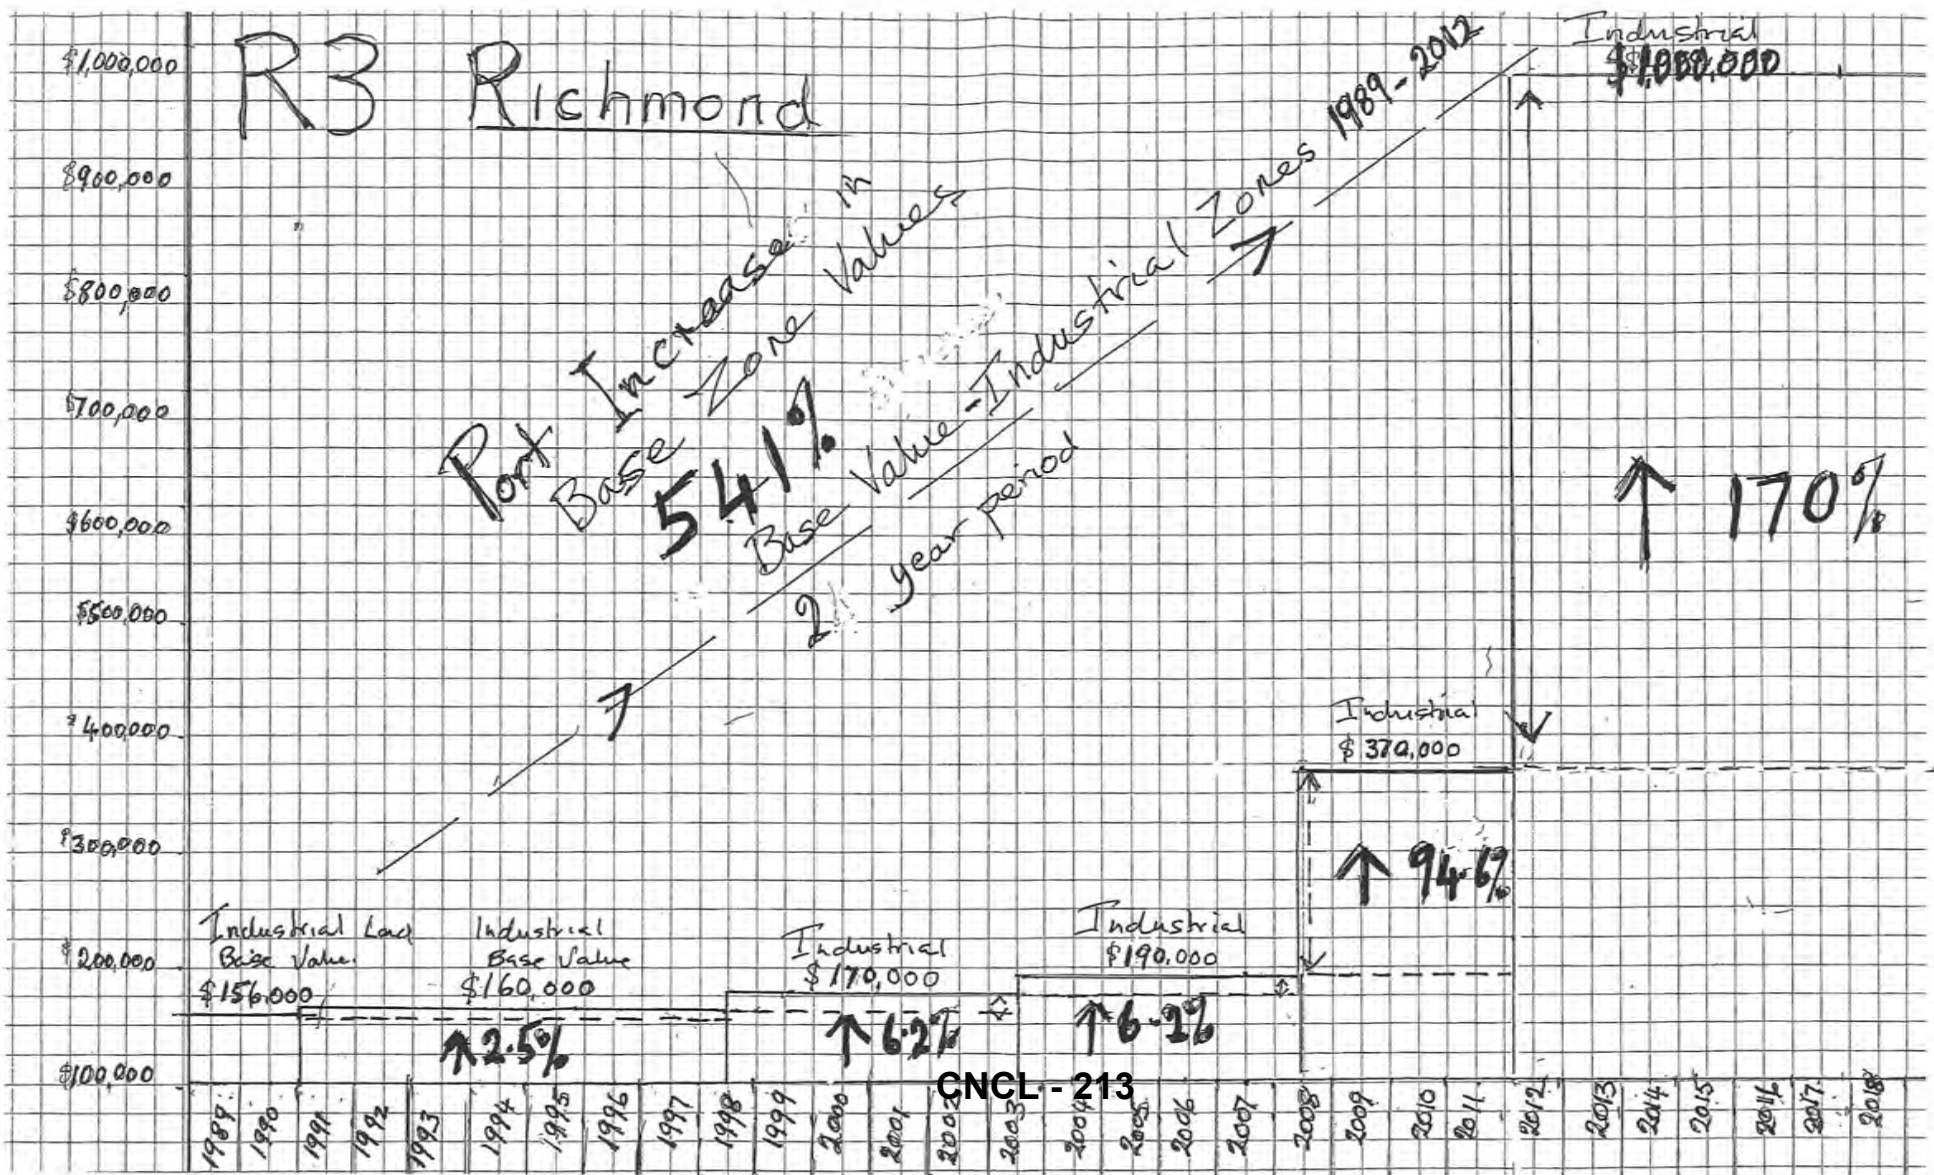 R3 Richmond
$1,000,000
$900,000
$800,000
$700,000
$600,000
$500,000
$400,000
$300,000
$200,000
$100,000
Port Increase in
Base Zone Values
541%
Base Value - Industrial Zones 1989-2012
2 year period
Industrial
$1,000,000
↑ 170%
Industrial
$370,000
↑ 94.6%
Industrial Land
Base Value
$156,000
Industrial
Base Value
$160,000
↑ 2.5%
Industrial
$170,000
↑ 6.2%
Industrial
$190,000
↑ 6.2%
CNCL - 213
1989 1990 1991 1992 1993 1994 1995 1996 1997 1998 1999 2000 2001 2002 2003 2004 2005 2006 2007 2008 2009 2010 2011 2012 2013 2014 2015 2016 2017 2018